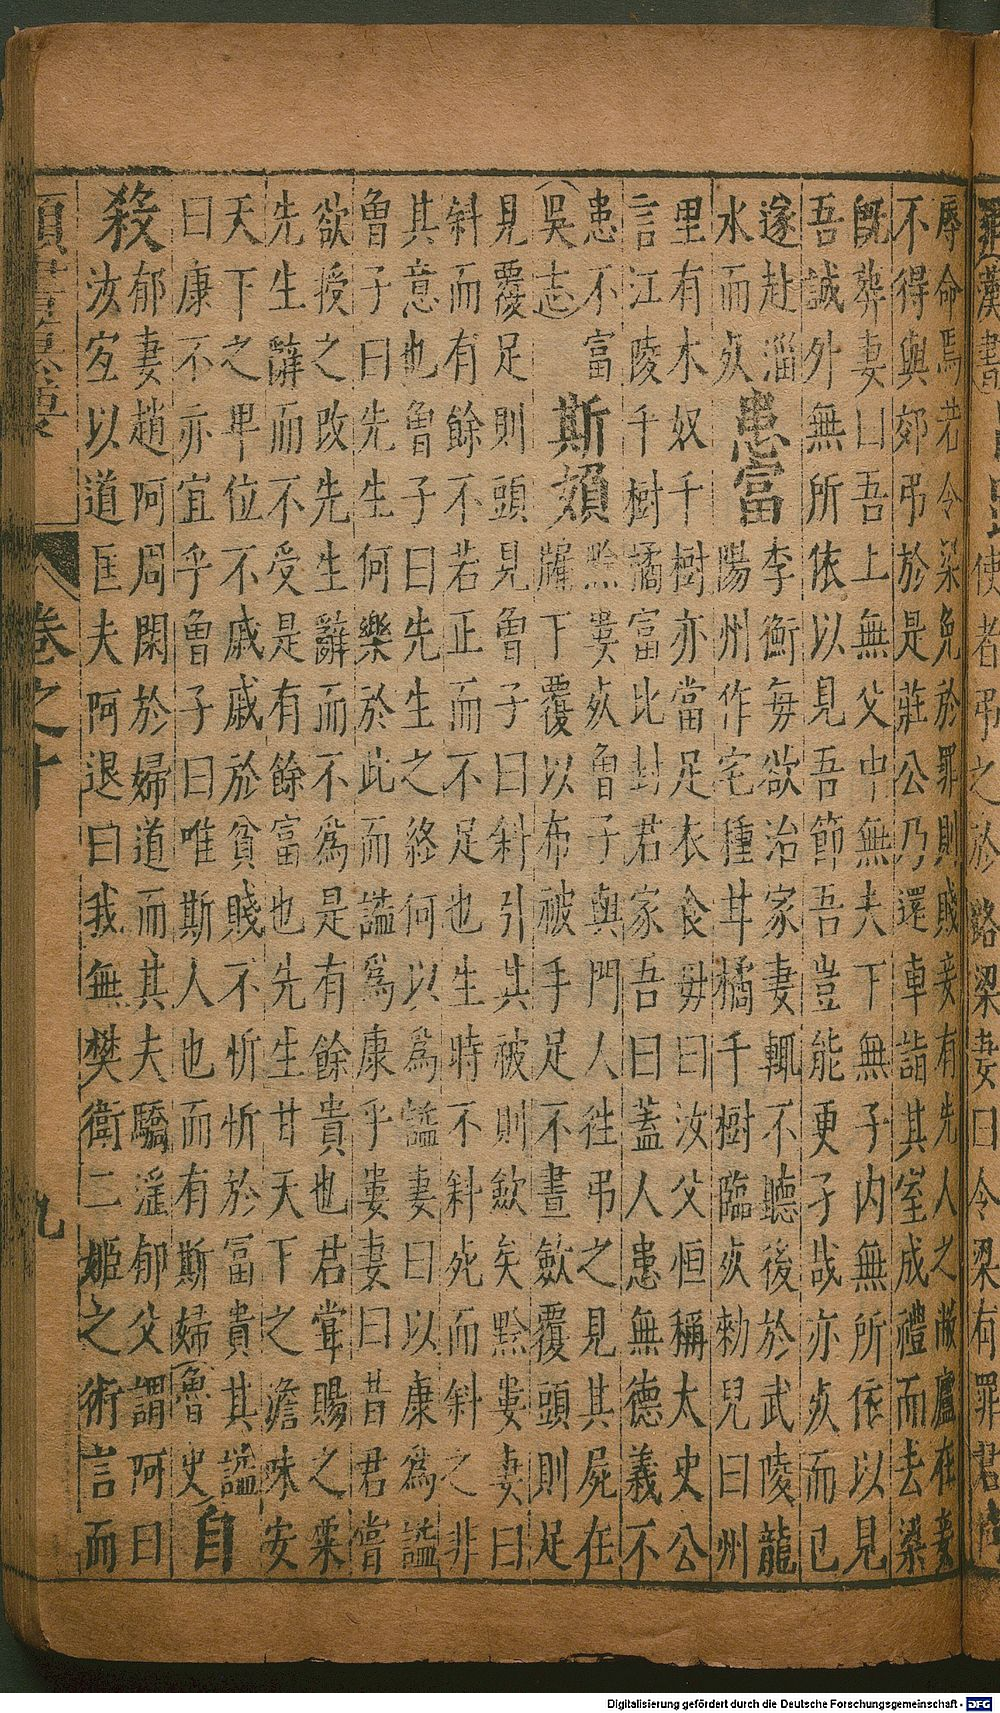 使者弔之於路梁妻曰今梁有罪君
辱命焉若令梁免於罪則賤妾有先人之敝廬在妻
不得與郊弔於是莊公乃還車詣其室成禮而去梁
既葬妻曰吾上無父中無夫下無子内無所依以見
吾誠外無所依以見吾節吾豈能更子哉亦死而已
遂赴淄
水而死
患富
李衡每欲治家妻輒不聽後於武陵龍
陽州作宅種甘橘千樹臨死勑兒曰州
里有木奴千樹亦當足衣食毋曰汝父恒稱太史公
言江陵千樹橘富比封君家吾曰蓋人患無德義不
患不富
吳志
斯婦
黔婁死魯子與門人徃弔之見其屍在
牖下覆以布被手足不盡歛覆頭則足
見覆足則頭見魯子曰斜引其被則歛矣黔婁妻曰
斜而有餘不若正而不足也生時不斜死而斜之非
其意也魯子曰先生之終何以爲謚妻曰以康爲謚
魯子曰先生何樂於此而謚爲康乎婁妻曰昔君嘗
欲授之政先生辭而不爲是有餘貴也君甞賜之粟
先生辭而不受是有餘富也先生甘天下之澹味安
天下之卑位不戚戚於貧賤不忻忻於富貴其謚
曰康不亦宜乎魯子曰唯斯人也而有斯婦魯史
自
殺
郁妻趙阿周閑於婦道而其夫驕淫郁父謂阿曰
汝宜以道匡夫阿退曰我無樊衛二姬之術言而
卷之十
九
Digitalisierung gefördert durch die Deutsche Forschungsgemeinschaft - DFG